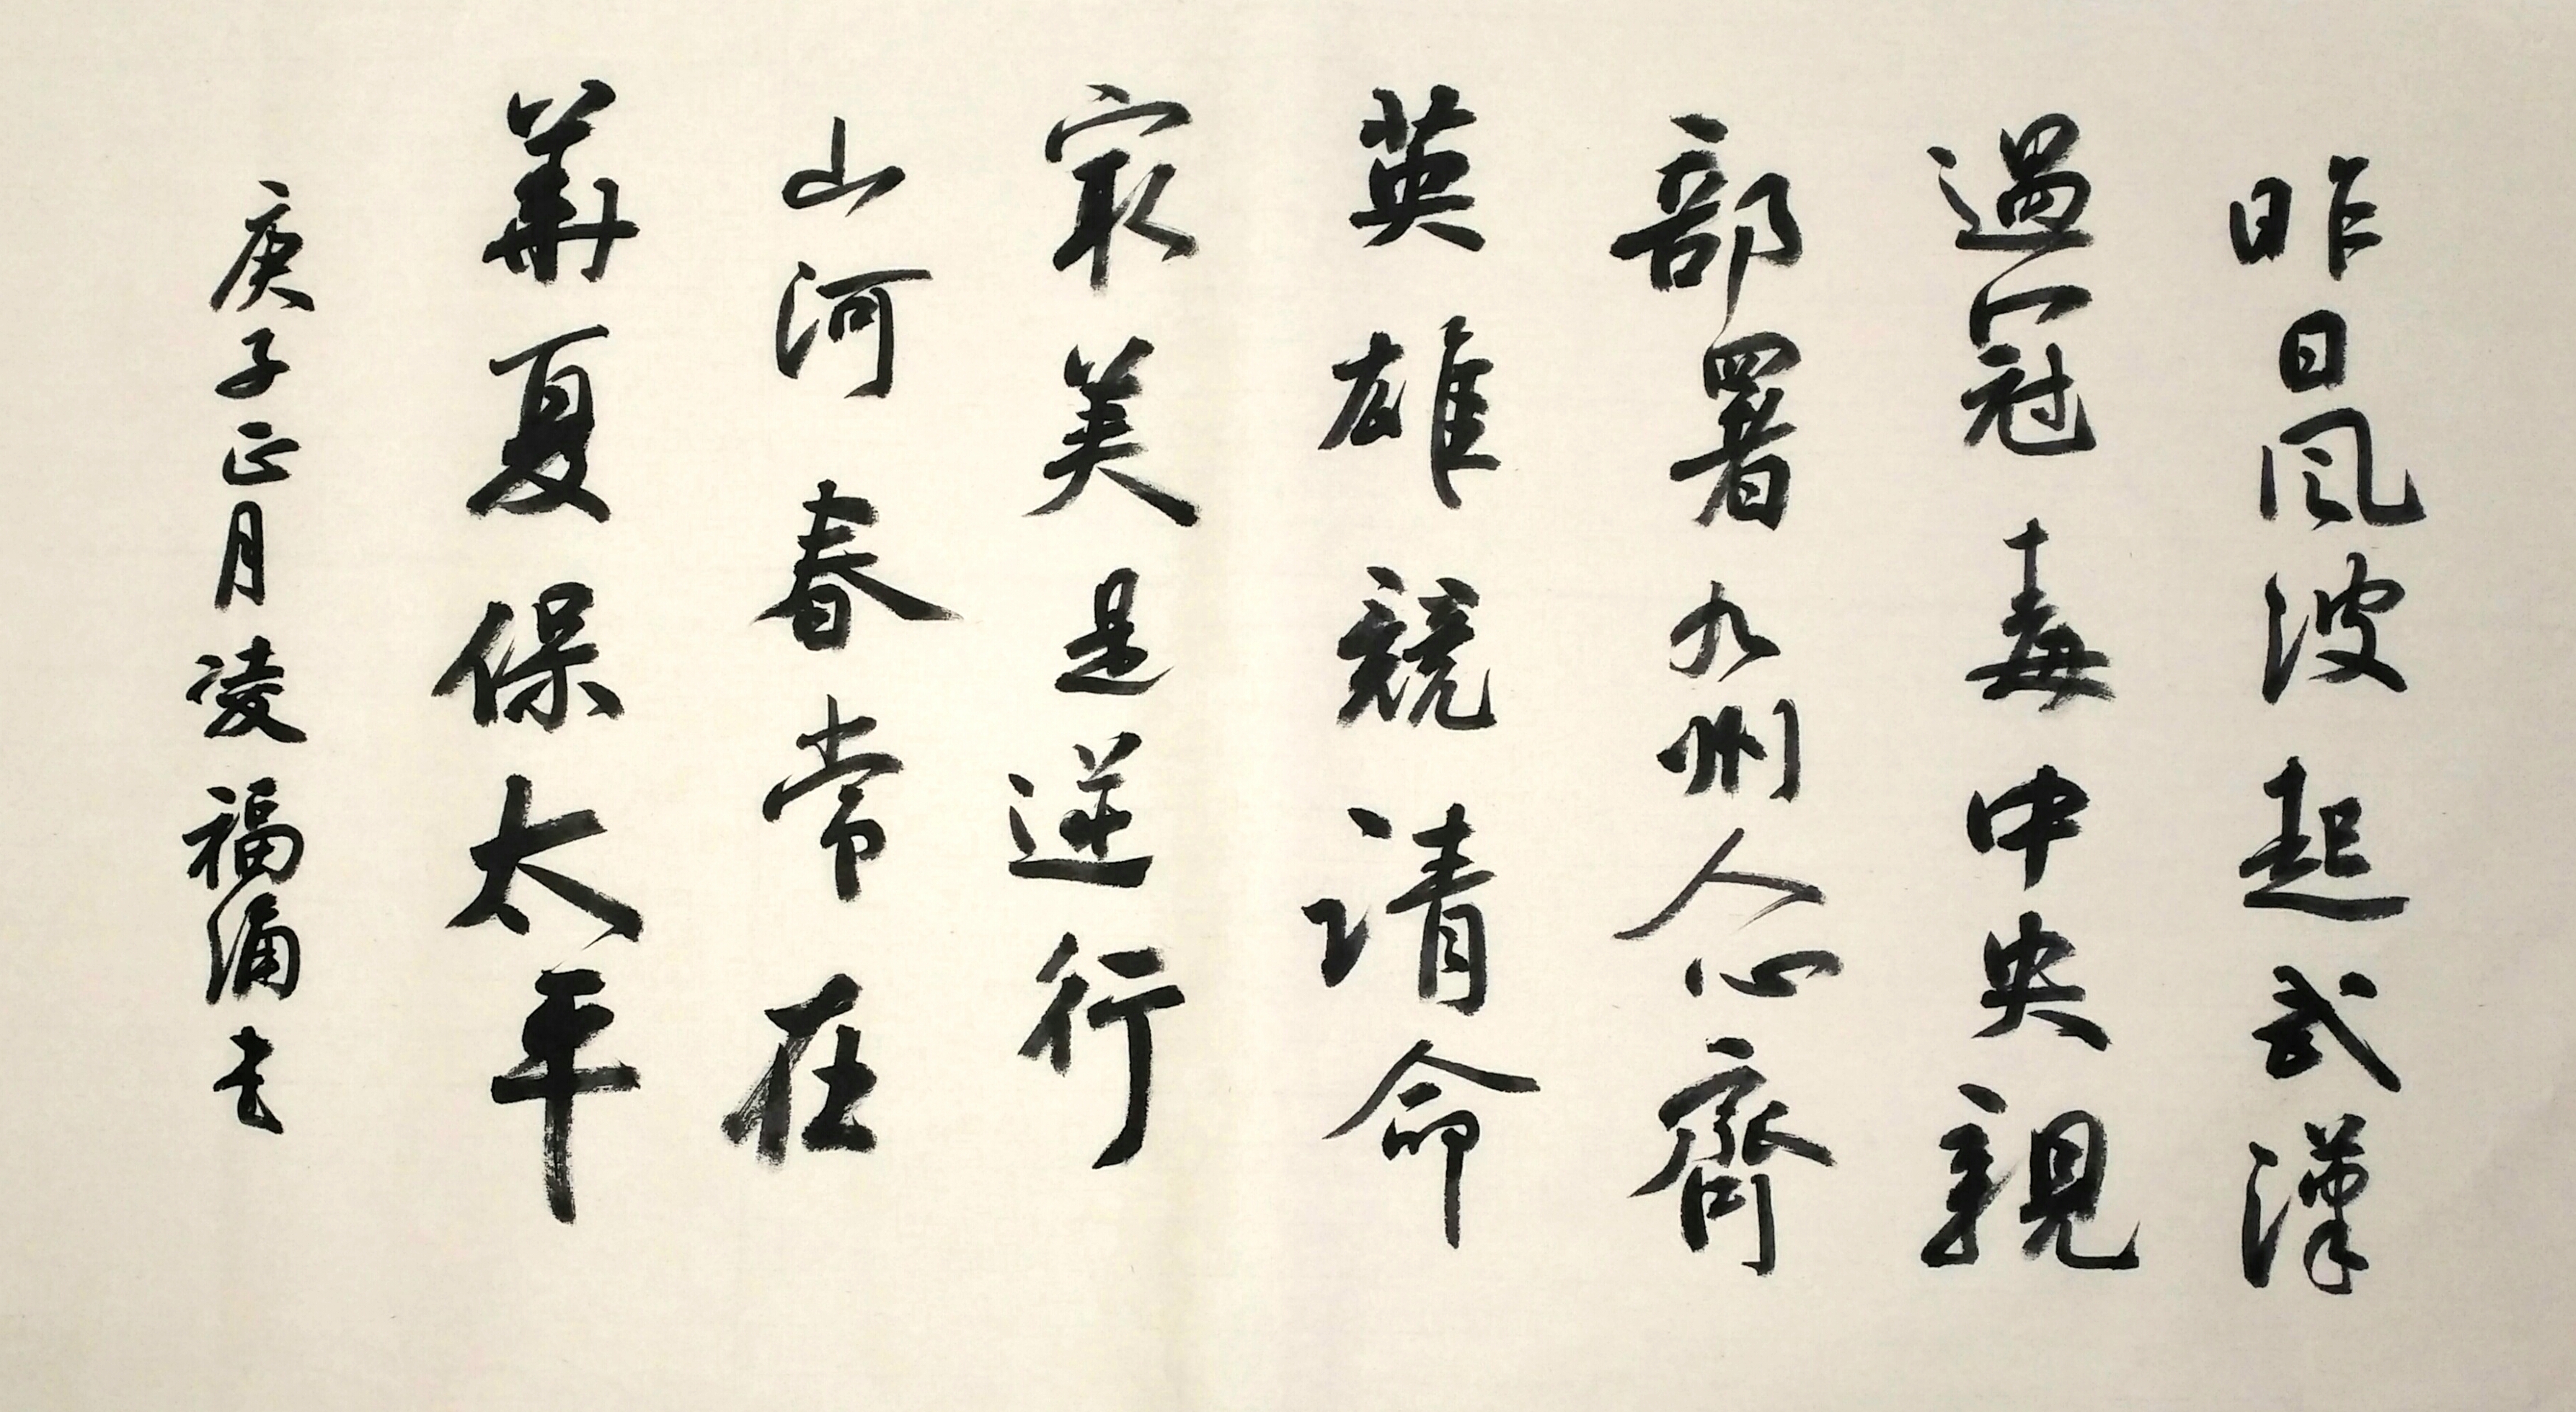 昨日風波起武漢
過冠毒中央親
部署九州人心齊
英雄競請命
㝡美是逆行
山河春常在
華夏保太平
庚子正月凌福涌書